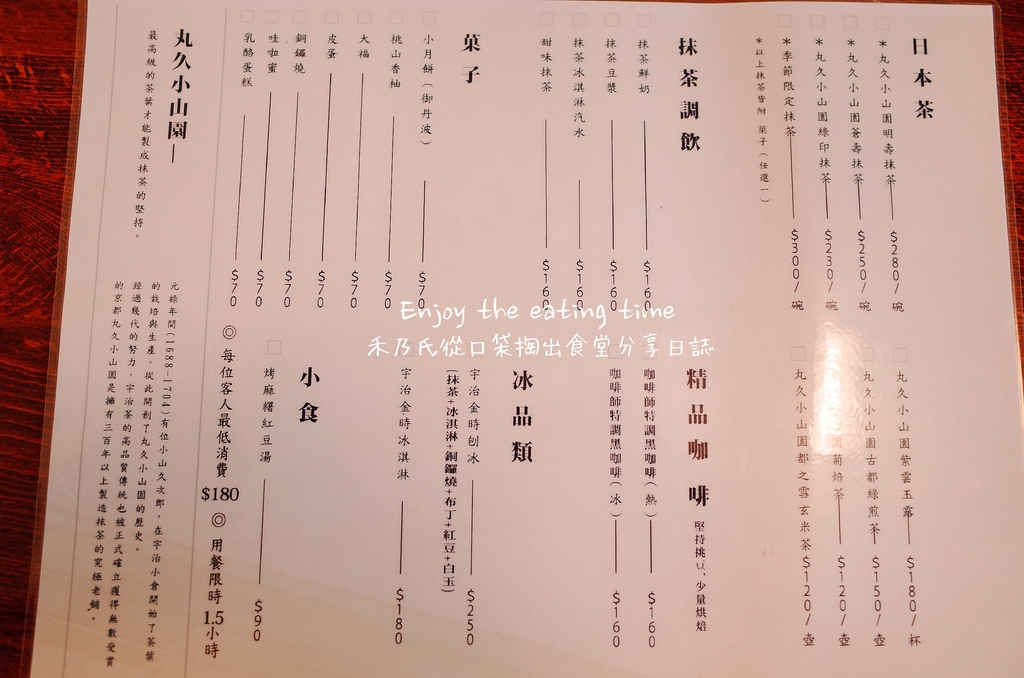 日本茶
*丸久小山園明壽抹茶 $280/碗
*丸久小山園蒼壽抹茶 $250/碗
*丸久小山園綠印抹茶 $230/碗
*季節限定抹茶 $300/碗
*以上抹茶皆附 菓子(任選一)
丸久小山園紫雲玉露 $180/杯
丸久小山園古都綠煎茶 $150/壺
園菊焙茶 $120/壺
丸久小山園都之雪玄米茶 $120/壺
抹茶調飲
抹茶鮮奶 $160
抹茶豆漿 $160
抹茶冰淇淋汽水 $160
甜味抹茶 $160
精品咖啡 堅持挑豆,少量烘焙
咖啡師特調黑咖啡(熱) $160
咖啡師特調黑咖啡(冰) $160
菓子
小月餅(御丹波) $70
桃山香柚 $70
大福 $70
皮蛋 $70
銅鑼燒 $70
哇啦蜜 $70
乳酪蛋糕 $70
冰品類
宇治金時刨冰 $250
(抹茶+冰淇淋+銅鑼燒+布丁+紅豆+白玉)
宇治金時冰淇淋 $180
小食
烤麻糬紅豆湯 $90
◎ 每位客人最低消費 $180 ◎ 用餐限時 1.5小時
丸久小山園—
最高級的茶葉才能製成抹茶的堅持。
元祿年間(1688-1704)有位小山久次郎,在宇治小倉開始了茶葉
的栽培與生產,從此開創了丸久小山園的歷史。
經過幾代的努力,宇治茶的高品質傳統也被正式確立獲得無數受賞
的京都丸久小山園是擁有三百年以上製造抹茶的究極老舖。
Enjoy the eating time
禾乃氏從口袋掏出食堂分享日誌